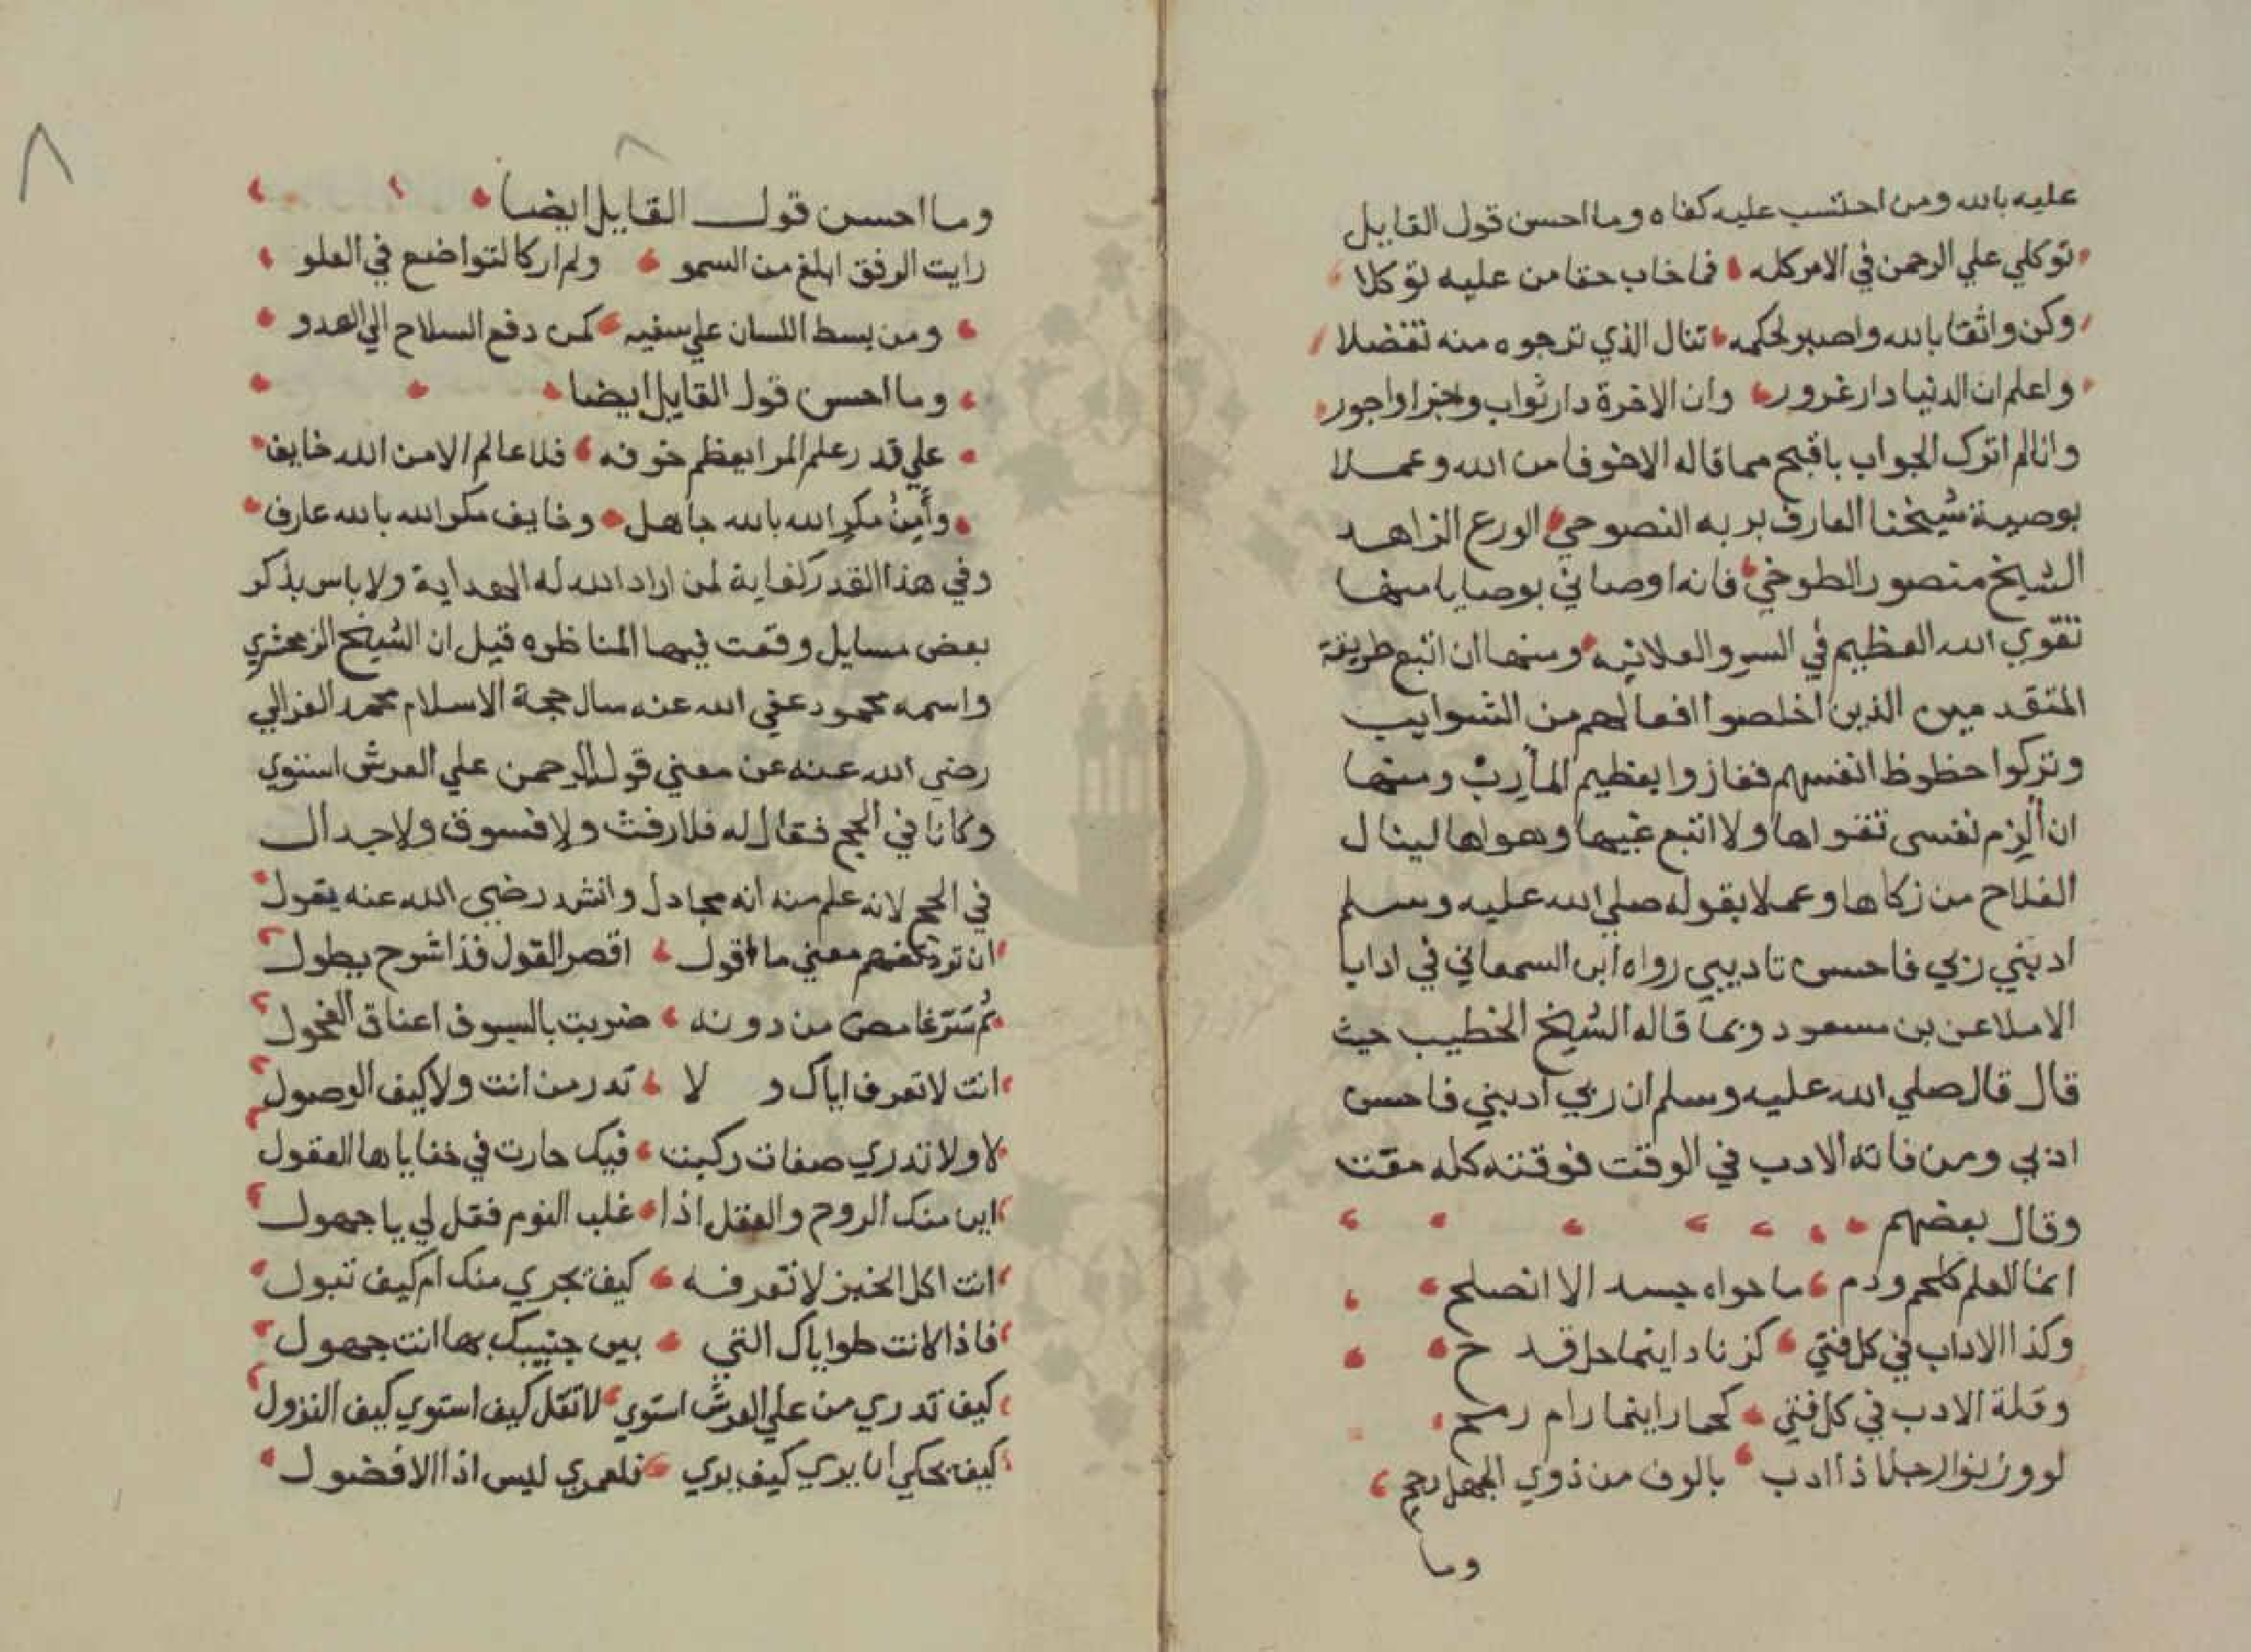 عليه بالله ومن احتسب عليه كفاه وما احسن قول القايل
توكلي علي الرحمن في الامر كله فما خاب حقا من عليه توكلا
وكن واثقا بالله واصبر لحكمه تنال الذي ترجوه منه تفضلا
واعلم ان الدنيا دار غرور وان الاخرة دار ثواب واجور
وانا لم اترك الجواب باقبح مما قاله الا خوفا من الله وعملا
بوصية شيخنا العارف بربه النصوحي الورع الزاهد
الشيخ منصور الطوخي فانه اوصاني بوصايا منها
تقوي الله العظيم في السر والعلانيه ومنها ان اتبع طريقة
المتقدمين الذين اخلصوا افعالهم من الشوايب
وتركوا حظوظ انفسهم ففازوا بعظيم المأرب ومنها
ان ألزم نفسى تقواها ولا اتبع غيها وهواها لينال
الفلاح من زكاها وعملا بقوله صلي الله عليه وسلم
ادبني ربي فاحسن تاديبي رواه ابن السمعاني في اداب
الاملا عن بن مسعود وبما قاله الشيخ الخطيب حيث
قال قال صلي الله عليه وسلم ان ربي ادبني فاحسن
ادبي ومن فاته الادب في الوقت فوقته كله مقت
وقال بعضهم
انما العلم كلحم ودم ما حواه جسد الا انصلح
وكذا الاداب في كل فتي كزناد اينما حل قدح
وقلة الادب في كل فتي كحمار اينما رام رمح
لو وزنوا رجلا ذا ادب بالوف من ذوي الجهل رجح
وما
٨
٨
وما احسن قول القايل ايضا
رايت الرفق ابلغ من السمو ولم ار كالتواضع في العلو
ومن بسط اللسان علي سفيه كمن دفع السلاح الي العدو
وما احسن قول القايل ايضا
علي قدر علم المرا يعظم خوفه فلا عالم الا من الله خايف
وأمن مكر الله بالله جاهل وخايف مكر الله بالله عارف
وفي هذا القدر كفاية لمن اراد الله له الهداية ولا باس بذكر
بعض مسايل وقعت فيها المناظره قيل ان الشيخ الزمحشري
واسمه محمود عفي الله عنه سال حجة الاسلام محمد الغزالي
رضي الله عنه عن معني قول الرحمن علي العرش استوي
وكانا في الحج فقال له فلا رفث ولا فسوق ولا جدال
في الحج لانه علم منه انه مجادل وانشد رضي الله عنه يقول
ان ترد تفهم معني ما اقول اقصر القول فذا شرح يطول
ثم سر غامص من دونه ضربت بالسيوف اعناق الفحول
انت لا تعرف اياك ولا تدر من انت ولا كيف الوصول
لا ولا تدري صفات ركبت فيك حارت في خفاياها العقول
اين منك الروح والعقل اذا غلب النوم فقل لي يا جهول
انت اكل الخبز لا تعرفه كيف يجري منك ام كيف تبول
فاذا كانت طواياك التي بين جنبيك بها انت جهول
كيف تدري من علي العرش استوي لا تقل كيف استوي كيف النزول
كيف يحكي انا يري كيف يري فلعمري ليس اذا الا فضول